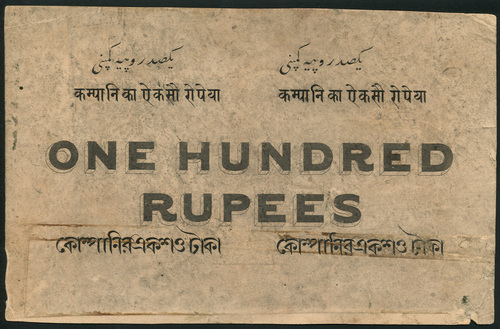 یکصد روپیه کمپنی یکصد روپیه کمپنی
कम्पानि का ऐकसौ रोपेया कम्पानि का ऐकसौ रोपेया
ONE HUNDRED
RUPEES
কোম্পানির একশও টাকা কোম্পানির একশও টাকা